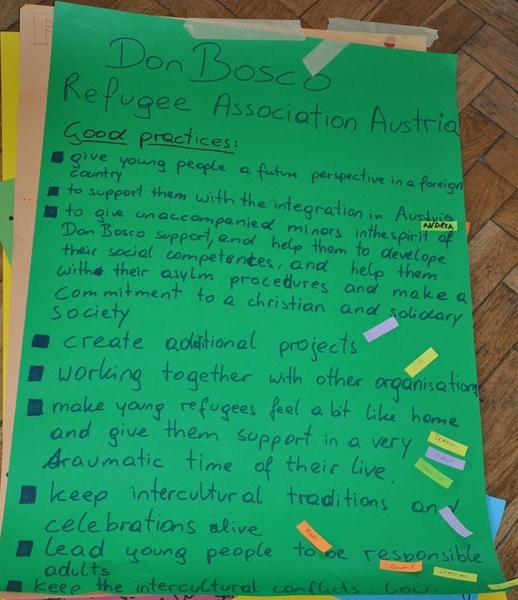 Don Bosco
Refugee Association Austria
Good practices:
give young people a future perspective in a foreign
country
to support them with the integration in Austria
to give unaccompanied minors in the spirit of
Don Bosco support, and help them to develope
their social competences, and help them
with their asylm procedures and make a
commitment to a christian and solidary
society
create additional projects
working together with other organisations
make young refugees feel a bit like home
and give them support in a very
traumatic time of their live.
keep intercultural traditions and
celebrations alive
lead young people to be responsible
adults
keep the intercultural conflicts low.